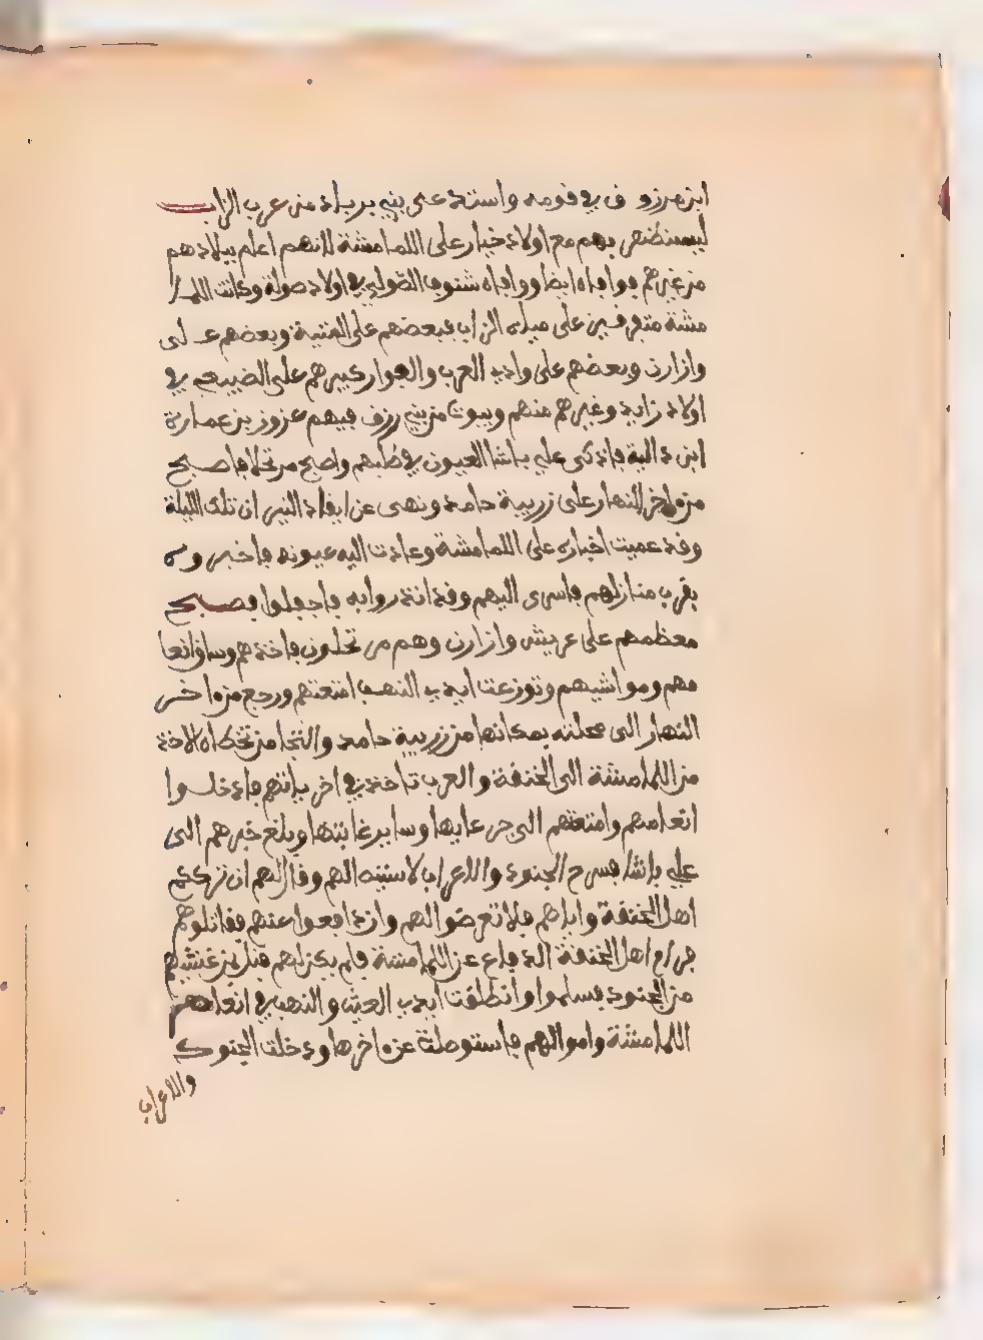 ابن مرزوق في قومه واستدعى بني بربار من عرب الزاب
ليستظهر بهم مع اولاد خيار على اللمامشة لانهم اعلم ببلادهم
من غيرهم فوافاه ايضا ووافاه شنوف الصولي في اولاد صولة وكانت اللما
مشة متفرقين على مياه الزاب فبعضهم على الفتية وبعضهم على
وازارن وبعضهم على وادي العرب والعوار كبيرهم على الضيبعي في
اولاد زايد وغيرهم منهم وبيوت من بني رزق فيهم عزوز بن عمارة
ابن دالية فاذكى علي باشا العيون في طلبهم واصبح مرتحلا فاصبح
من ءاخر النهار على زريبة حامد ونهى عن ايقاد النيران تلك الليلة
وقد عميت اخباره على اللمامشة وعادت اليه عيونه فاخبروه
بقرب منازلهم فاسرى اليهم وقد انذروا به فاجفلوا فصبح
معظمهم على عريش وازارن وهم مرتحلون فاخذهم وساق انعا
مهم ومواشيهم وتوزعت ايدي النهب امتعتهم ورجع من ءاخر
النهار الى محلته بمكانها من زريبة حامد والتجا من تخطاه الاخذ
من اللمامشة الى الخنقة والعرب تاخذ في اخرياتهم فادخلوا
انعامهم وامتعتهم الى جرعايها وساير غابتها وبلغ خبرهم الى
علي باشا فسرح الجنود والاعراب لاستيصالهم وقال لهم ان تركهم
اهل الخنقة واياهم فلا تعرضوا لهم وان دافعوا عنهم فقاتلوهم
فرام اهل الخنقة الدفاع عن اللمامشة فلم يكن لهم قبل بمن غشيهم
من الجنود فسلموا وانطلقت ايدي العيث والنهب في انعامهم
اللمامشة واموالهم فاستوصلت عن ءاخرها ودخلت الجنود
والاعراب